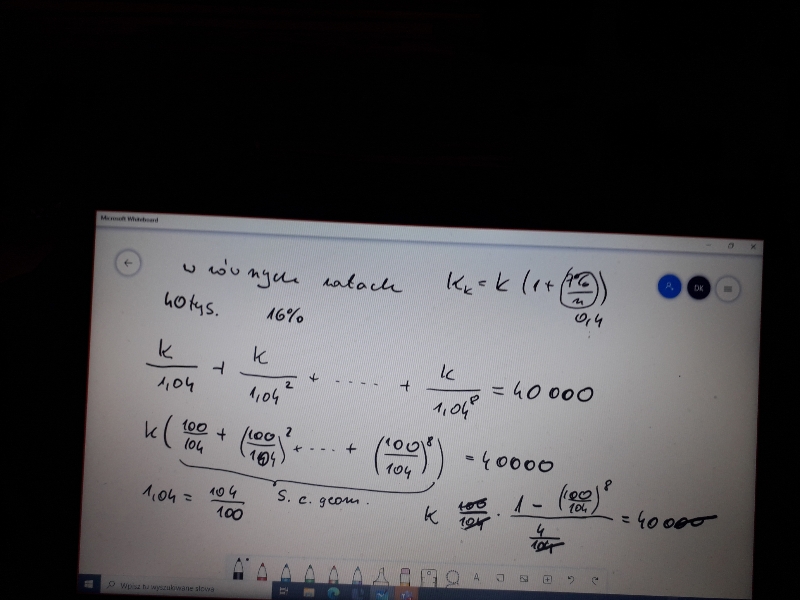 Microsoft Whiteboard
w równych ratach K_k = k (1 + (p% / n))
DK
40tys. 16% 0,4
k/1,04 + k/1,04² + ..... + k/1,04⁸ = 40 000
k ( 100/104 + (100/104)² + ... + (100/104)⁸ ) = 40000
1,04 = 104/100 S. c. geom. k 100/104 · (1 - (100/104)⁸) / (4/104) = 40000
Wpisz tu wyszukiwane słowa